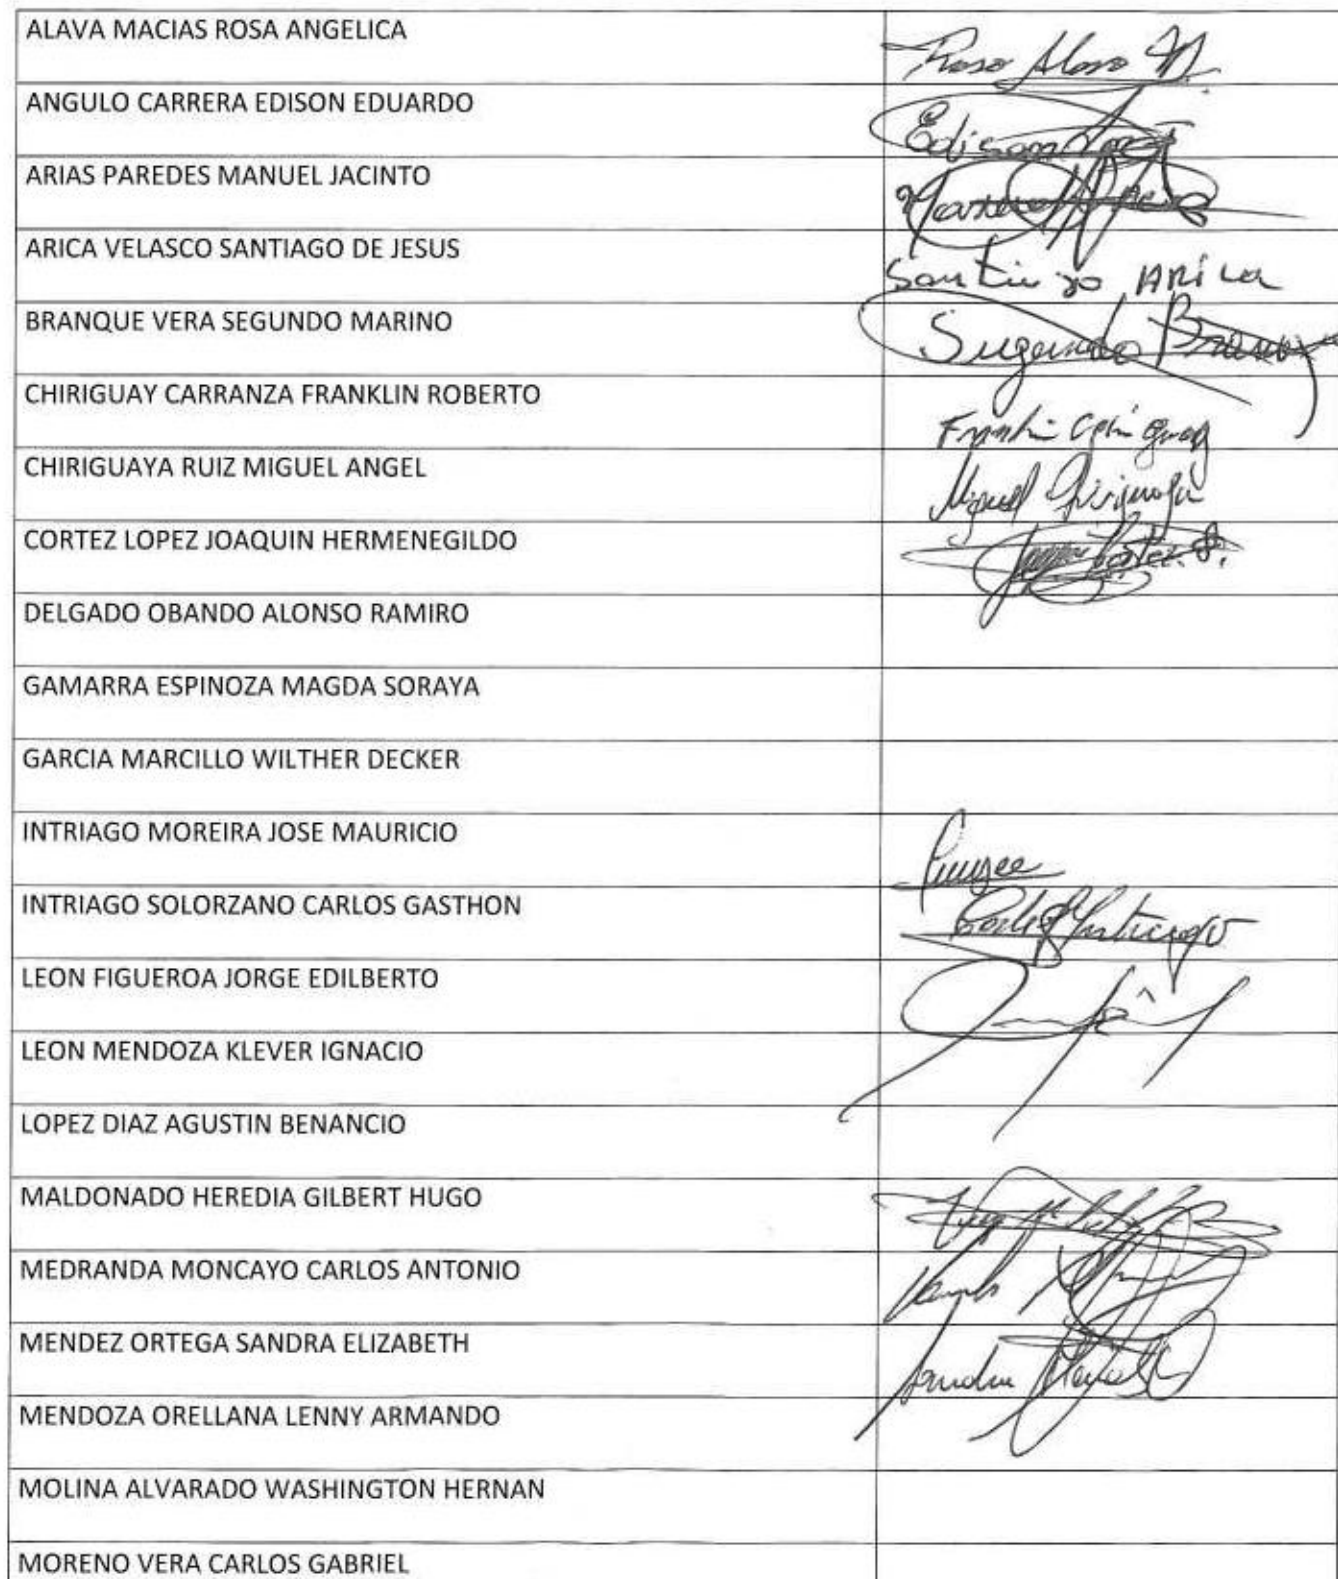 ALAVA MACIAS ROSA ANGELICA
Rosa Alava M.
ANGULO CARRERA EDISON EDUARDO
Edison
ARIAS PAREDES MANUEL JACINTO
Manuel
ARICA VELASCO SANTIAGO DE JESUS
Santiago ARica
BRANQUE VERA SEGUNDO MARINO
Segundo
CHIRIGUAY CARRANZA FRANKLIN ROBERTO
CHIRIGUAYA RUIZ MIGUEL ANGEL
Miguel Chiriguaya
CORTEZ LOPEZ JOAQUIN HERMENEGILDO
DELGADO OBANDO ALONSO RAMIRO
GAMARRA ESPINOZA MAGDA SORAYA
GARCIA MARCILLO WILTHER DECKER
INTRIAGO MOREIRA JOSE MAURICIO
INTRIAGO SOLORZANO CARLOS GASTHON
Intriago
LEON FIGUEROA JORGE EDILBERTO
LEON MENDOZA KLEVER IGNACIO
LOPEZ DIAZ AGUSTIN BENANCIO
MALDONADO HEREDIA GILBERT HUGO
MEDRANDA MONCAYO CARLOS ANTONIO
MENDEZ ORTEGA SANDRA ELIZABETH
Sandra
MENDOZA ORELLANA LENNY ARMANDO
MOLINA ALVARADO WASHINGTON HERNAN
MORENO VERA CARLOS GABRIEL